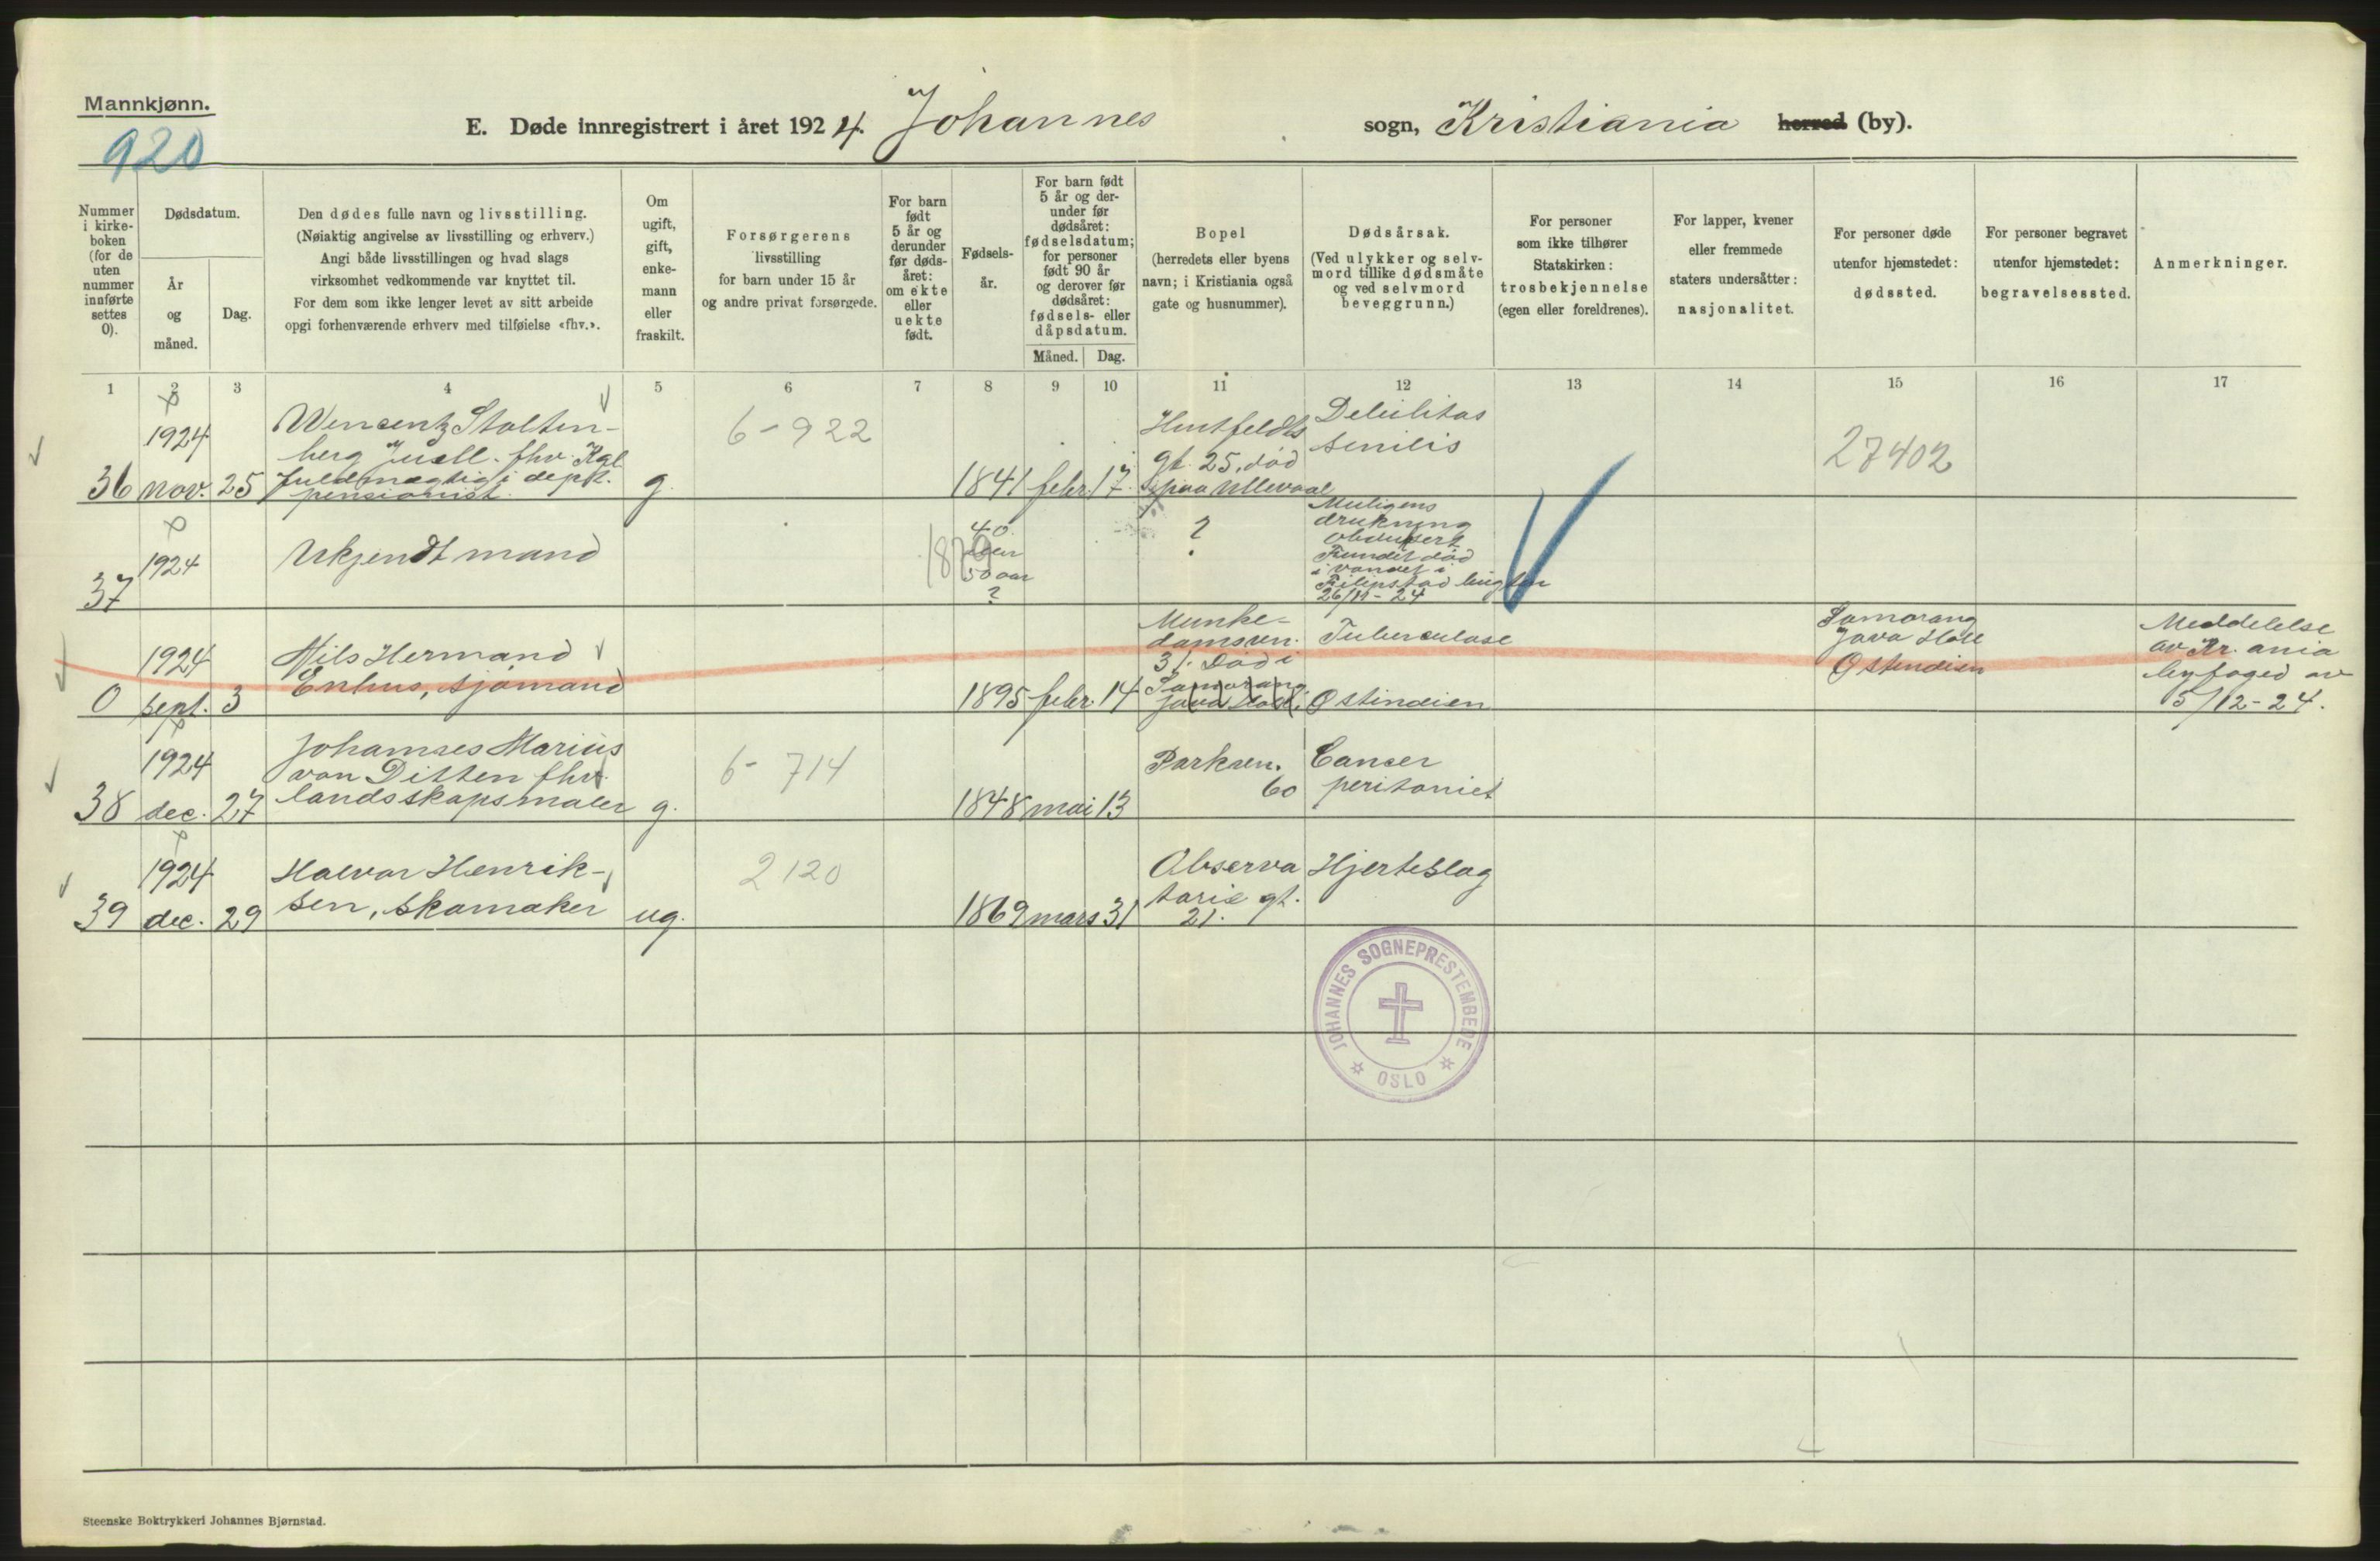 Mannkjønn.
920
E. Døde innregistrert i året 1924. Johannes sogn, Kristiania herred (by).
Nummer i kirke- boken (for de uten nummer innførte settes 0).
Dødsdatum.
År og måned.
Dag.
Den dødes fulle navn og livsstilling.
(Nøiaktig angivelse av livsstilling og erhverv.)
Angi både livsstillingen og hvad slags
virksomhet vedkommende var knyttet til.
For dem som ikke lenger levet av sitt arbeide
opgi forhenværende erhverv med tilføielse «fhv.».
Om ugift, gift, enke- mann eller fraskilt.
Forsørgerens
livsstilling
for barn under 15 år
og andre privat forsørgede.
For barn født 5 år og derunder før døds- året: om ekte eller uekte født.
Fødsels- år.
For barn født 5 år og der- under før dødsåret: fødselsdatum; for personer født 90 år og derover før dødsåret: fødsels- eller dåpsdatum.
Måned. Dag.
Bopel
(herredets eller byens
navn; i Kristiania også
gate og husnummer).
Dødsårsak.
(Ved ulykker og selv-
mord tillike dødsmåte
og ved selvmord
beveggrunn.)
For personer
som ikke tilhører
Statskirken:
trosbekjennelse
(egen eller foreldrenes).
For lapper, kvener
eller fremmede
staters undersåtter:
nasjonalitet.
For personer døde
utenfor hjemstedet:
dødssted.
For personer begravet
utenfor hjemstedet:
begravelsessted.
Anmerkninger.
1 2 3 4 5 6 7 8 9 10 11 12 13 14 15 16 17
36 1924 nov. 25
Wencentz Stolten-
berg Juell. fhv. Kgl.
fuldmægtig i dept.
pensionist.
g.
6-922
1841 febr. 17.
gt. 25, död
paa Ullevaal
Debilitas
senilis
27402
37 1924
Ukjendt mand
1879
40
50 aar
?
?
Muligens
drukning
obdusert
Fundet död
i vandet i
Filipstad bugten
26/11-24
0 1924 sept. 3
Nils Hermand
Enhus, sjömand
1895 febr. 14
Munke-
damsven.
31. Död i
Samarang
Java Holl.
Tuberculose
Ostindien
Samarang
Java Holl
Ostindien
Meddelelse
av Kr. ania
byfoged av
5/12-24.
38 1924 dec. 27
Johannes Marius
von Ditten fhv.
landsskapsmaler
g.
6-714
1848 mai 13
Parkven.
60
Cancer
peritoniet
39 1924 dec. 29
Halvor Henrik-
sen, skomaker
ug.
2120
1869 mars 31
Observa
torie gt.
21.
Hjerteslag
JOHANNES SOGNEPRESTEMBEDE
OSLO
Steenske Boktrykkeri Johannes Bjørnstad.